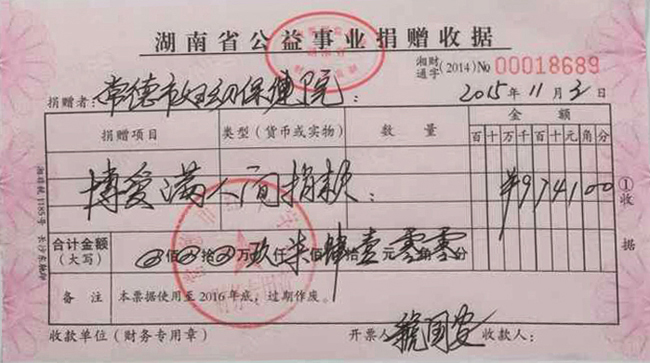 湖南省公益事业捐赠收据
湘财
通字(2014)No 00018689
捐赠者:常德市妇幼保健院: 2015年11月3日
捐赠项目 类型(货币或实物) 数量 金额
百十万千百十元角分
博爱满人间捐款: ¥974100
合计金额
(大写) 佰 拾 万玖仟柒佰肆拾壹元零角零分
备注 本票据使用至2016年底,过期作废。
收款单位(财务专用章) 开票人 收款人:
①收据
湘财税1185号